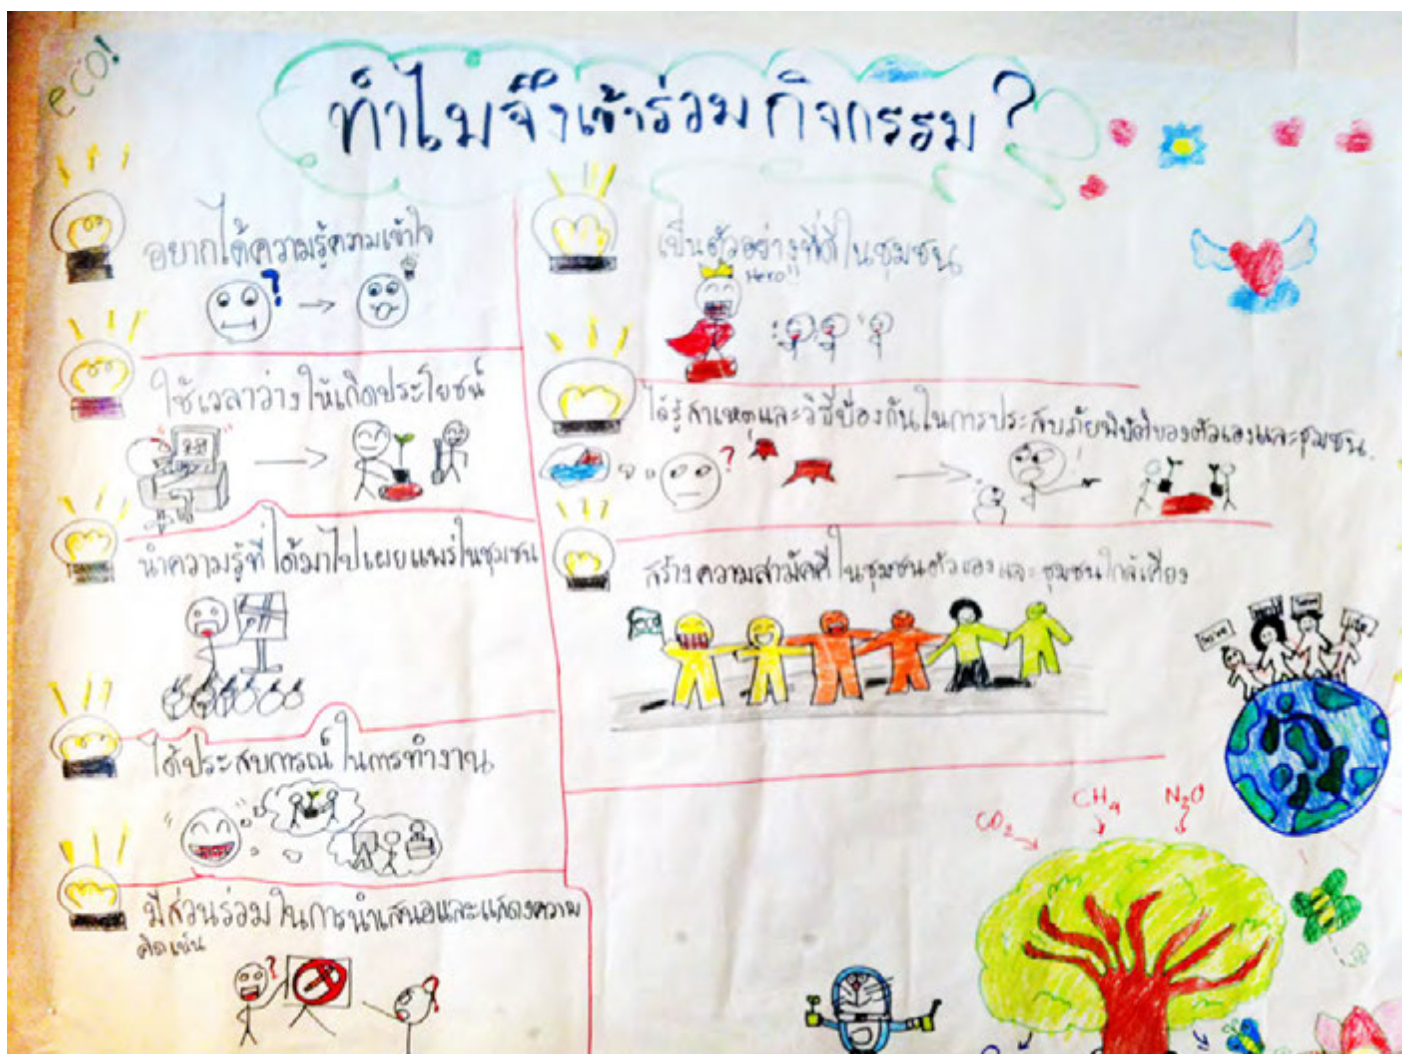 eco!
ทำไมจึงเข้าร่วมกิจกรรม?
อยากได้ความรู้ความเข้าใจ
?
ใช้เวลาว่างให้เกิดประโยชน์
นำความรู้ที่ได้มาไปเผยแพร่ในชุมชน
ได้ประสบการณ์ในการทำงาน
มีส่วนร่วมในการนำเสนอและแสดงความ
คิดเห็น
?
?
เป็นตัวอย่างที่ดีในชุมชน
Hero!!
ได้รู้สาเหตุและวิธีป้องกันในการประสบภัยพิบัติของตัวเองและชุมชน.
?
!
สร้างความสามัคคีในชุมชนตัวเองและชุมชนใกล้เคียง
CO2
CH4
N2O